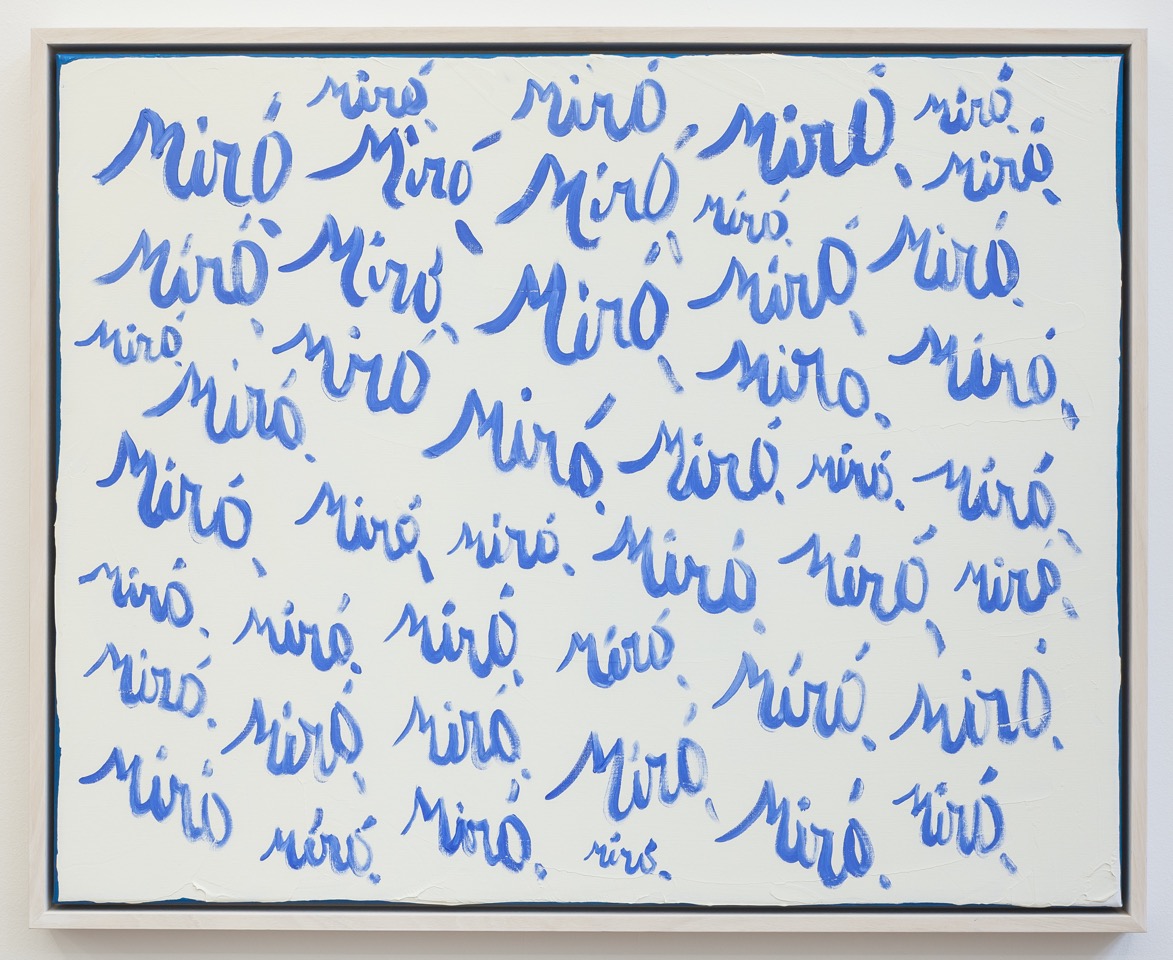 Miró miró Miró Miró miró
Miró Miró miró miró
Miró Miró Miró Miró Miró
Miró Miró Miro Miró
Miró Miró Miró miró Miró
Miró Miró miró Miró Miró miró
miró miró Miró miró
Miró Miró Miró Miró
Miró Miró Miró
Miró miró Miró miró Miró Miró